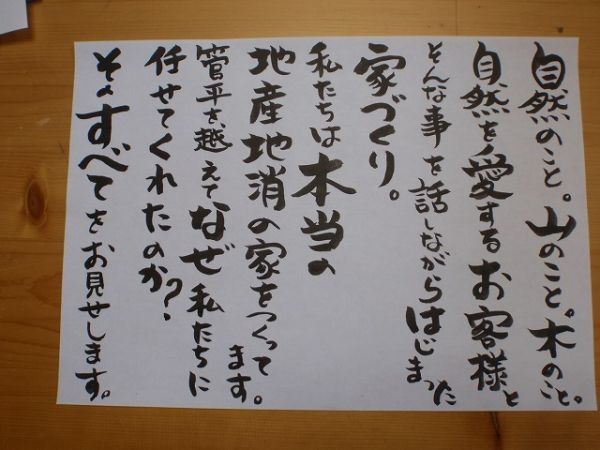 自然のこと。山のこと。木のこと。
自然を愛するお客様と
そんな事を話しながらはじまった
家づくり。
私たちは本当の
地産地消の家をつくって
ます。
菅平を越えてなぜ私たちに
任せてくれたのか?
そのすべてをお見せします。